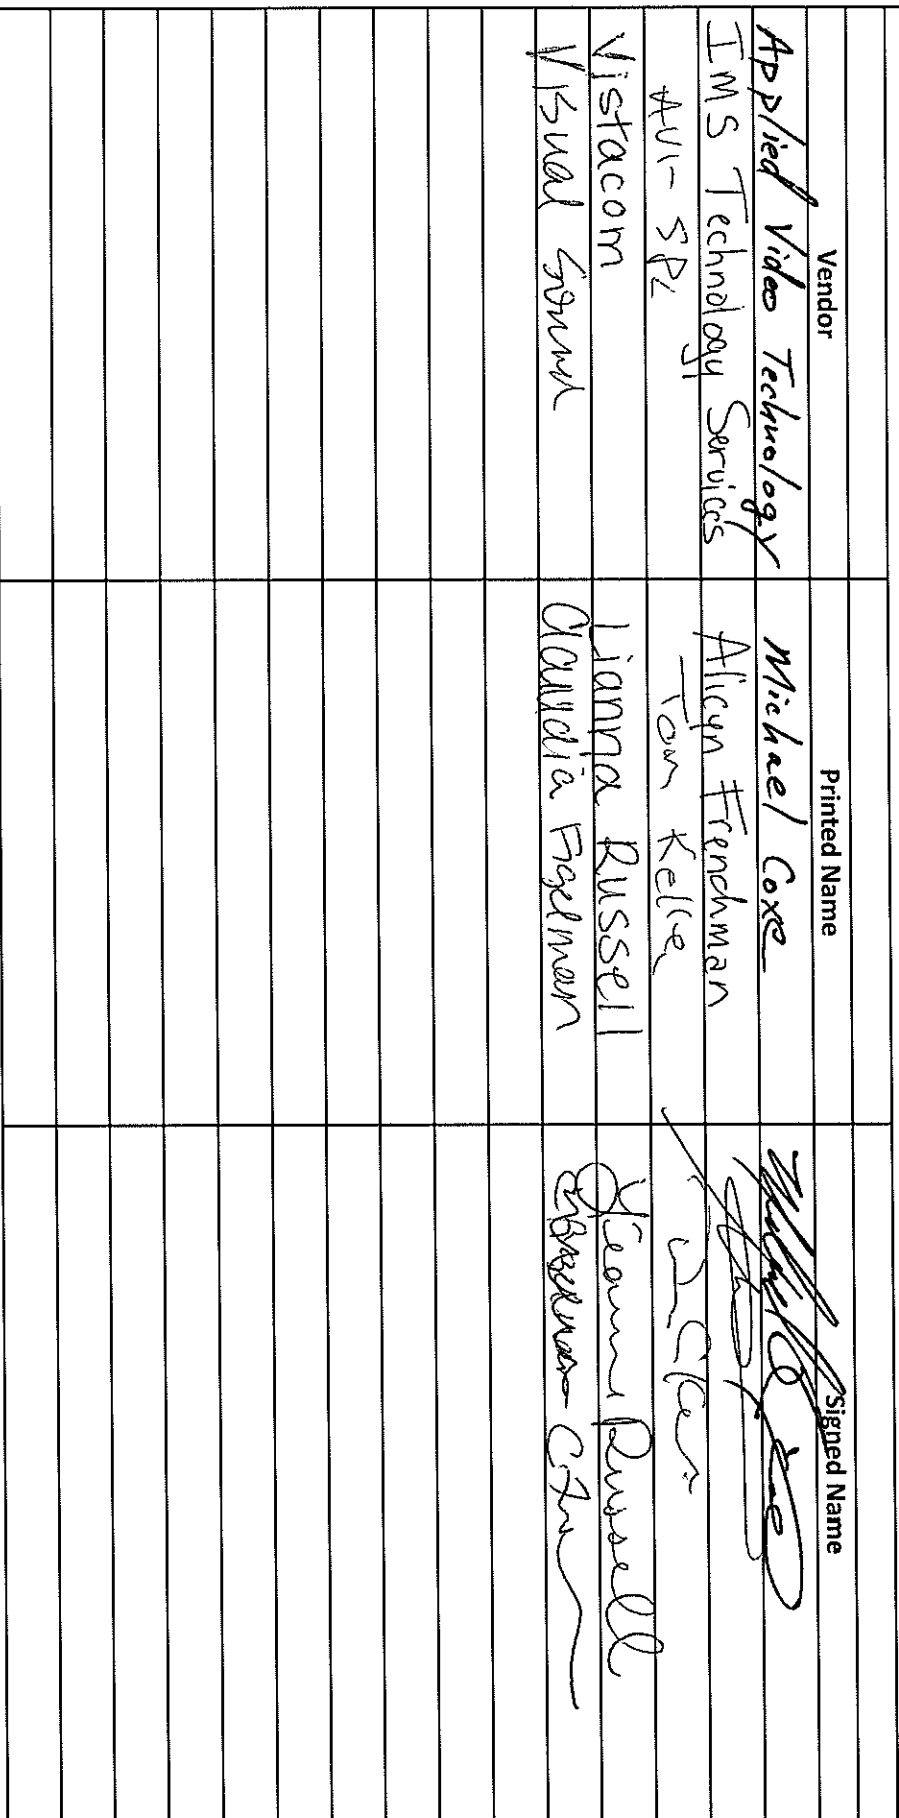 Vendor Printed Name Signed Name
Applied Video Technology Michael Coxe
IMS Technology Services Alicyn Frenchman
AVI-SPL Tom Keller
Vistacom Lianna Russell Lianna Russell
Visual Sound Claudia Figelman